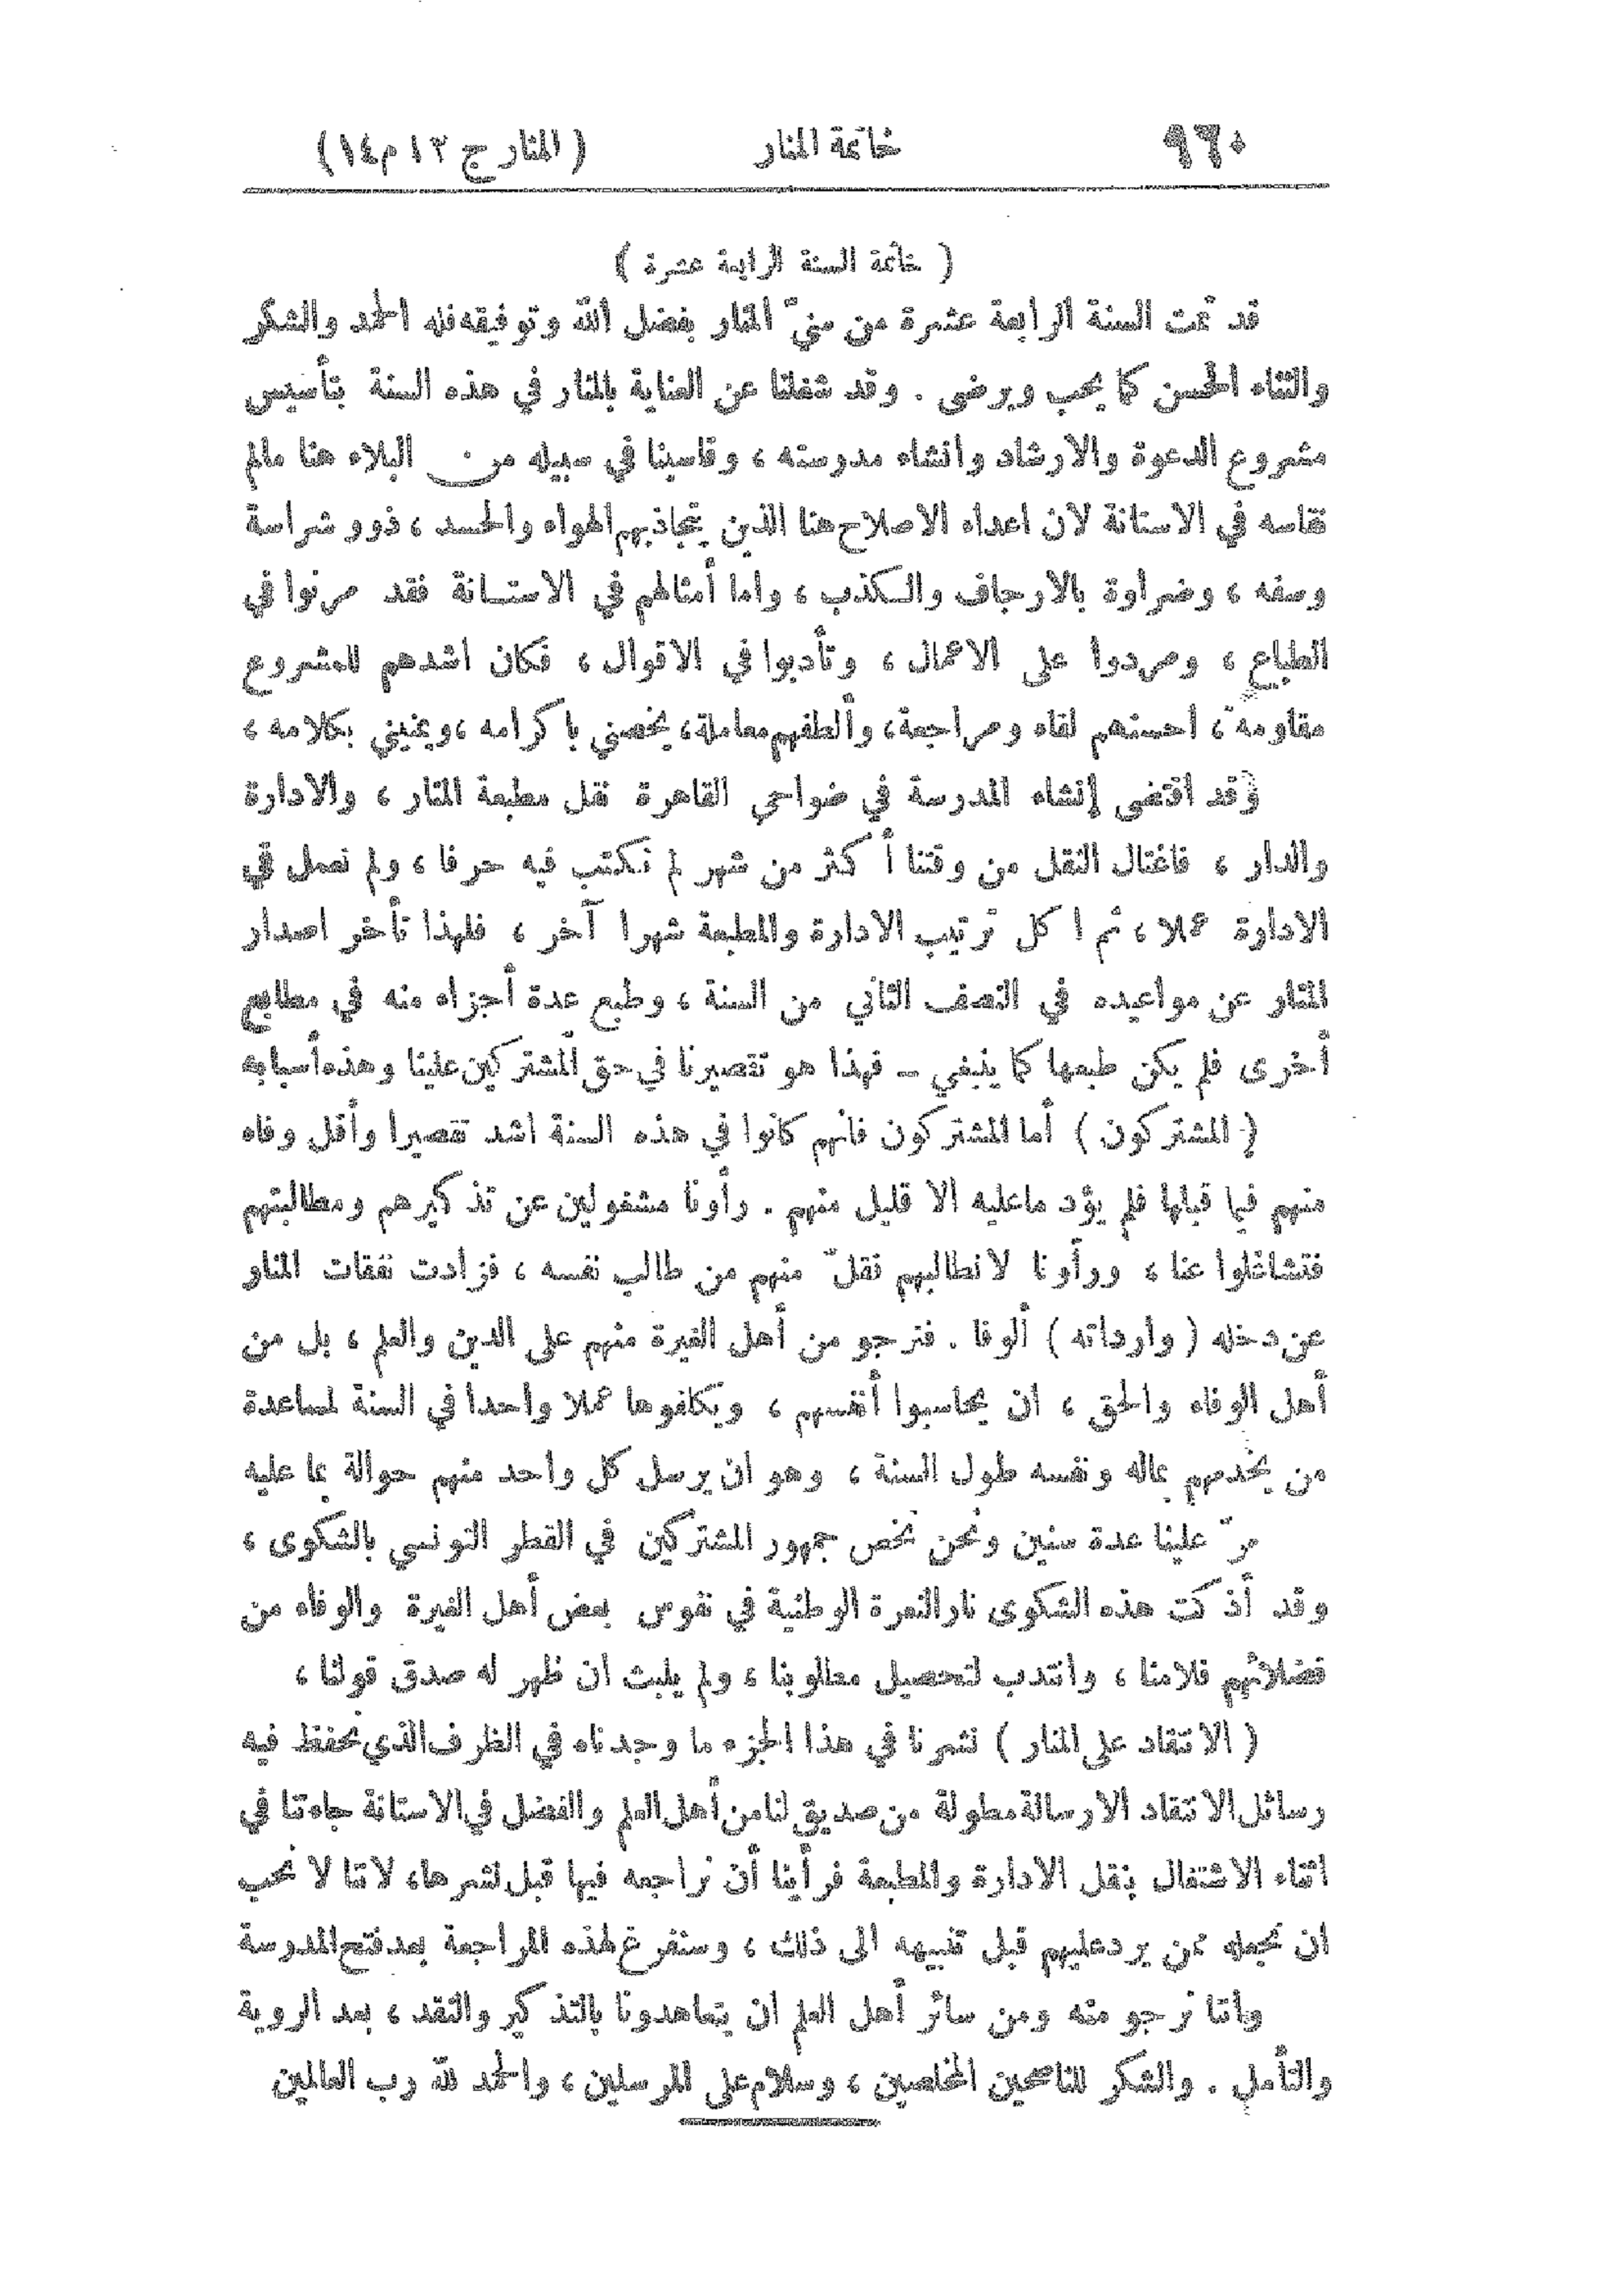 ٩٦٠ خاتمة المنار ( المنار ج ١٢ م ١٤ )
( خاتمة السنة الرابعة عشرة )
قد تمت السنة الرابعة عشرة من سنيّ المنار بفضل الله وتوفيقه فله الحمد والشكر
والثناء الحسن كما يحب ويرضى . وقد شغلنا عن العناية بالمنار في هذه السنة بتأسيس
مشروع الدعوة والارشاد وانشاء مدرسته ، وقاسينا في سبيله من البلاء هنا مالم
نقاسه في الاستانة لان اعداء الاصلاح هنا الذين يتجاذبهم الهواء والحسد ، ذوو شراسة
وسفه ، وضراوة بالارجاف والكذب ، واما أمثالهم في الاستانة فقد مرنوا في
الطباع ، ومردوا على الاعمال ، وتأدبوا في الاقوال ، فكان اشدهم للمشروع
مقاومة ، احسنهم لقاء ومراجعة ، وألطفهم معاملة ، يخصني باكرامه ، ويمنيني بكلامه ،
وقد اقتضى إنشاء المدرسة في ضواحي القاهرة نقل مطبعة المنار ، والادارة
والدار ، فاغتال النقل من وقتنا أكثر من شهر لم نكتب فيه حرفا ، ولم نعمل في
الادارة عملا ، ثم اكل ترتيب الادارة والمطبعة شهرا آخر ، فلهذا تأخر اصدار
المنار عن مواعيده في النصف الثاني من السنة ، وطبع عدة أجزاء منه في مطابع
أخرى فلم يكن طبعها كما ينبغي ــ فهذا هو تقصيرنا في حق المشتركين علينا وهذه أسبابه
( المشتركون ) أما المشتركون فانهم كانوا في هذه السنة اشد تقصيرا وأقل وفاء
منهم فيما قبلها فلم يؤد ماعليه الا قليل منهم . رأونا مشغولين عن تذكيرهم ومطالبتهم
فتشاغلوا عنا ، ورأونا لانطالبهم فقلّ منهم من طالب نفسه ، فزادت نفقات المنار
عن دخله ( وارداته ) ألوفا . فنرجو من أهل الغيرة منهم على الدين والعلم ، بل من
أهل الوفاء والحق ، ان يحاسبوا أنفسهم ، ويكلفوها عملا واحدا في السنة لمساعدة
من يخدمهم بماله ونفسه طول السنة ، وهو ان يرسل كل واحد منهم حوالة بما عليه
مرّ علينا عدة سنين ونحن نخص جمهور المشتركين في القطر التونسي بالشكوى ،
وقد أذكت هذه الشكوى نار النعرة الوطنية في نفوس بعض أهل الغيرة والوفاء من
فضلائهم فلامنا ، وانتدب لتحصيل مطلوبنا ، ولم يلبث ان ظهر له صدق قولنا ،
( الانتقاد على المنار ) نشرنا في هذا الجزء ما وجدناه في الظرف الذي نحفظ فيه
رسائل الانتقاد الا رسالة مطولة من صديق لنا من أهل العلم والفضل في الاستانة جاءتنا في
اثناء الاشتغال بنقل الادارة والمطبعة فرأينا أن نراجعه فيها قبل نشرها ، لاننا لا نحب
ان نجعله ممن يرد عليهم قبل تنبيهه الى ذلك ، وسنفرغ لهذه المراجعة بعد فتح المدرسة
واننا نرجو منه ومن سائر أهل العلم ان يتعاهدونا بالتذكير والنقد ، بعد الروية
والتأمل . والشكر للناصحين المخلصين ، وسلام على المرسلين ، والحمد لله رب العالمين